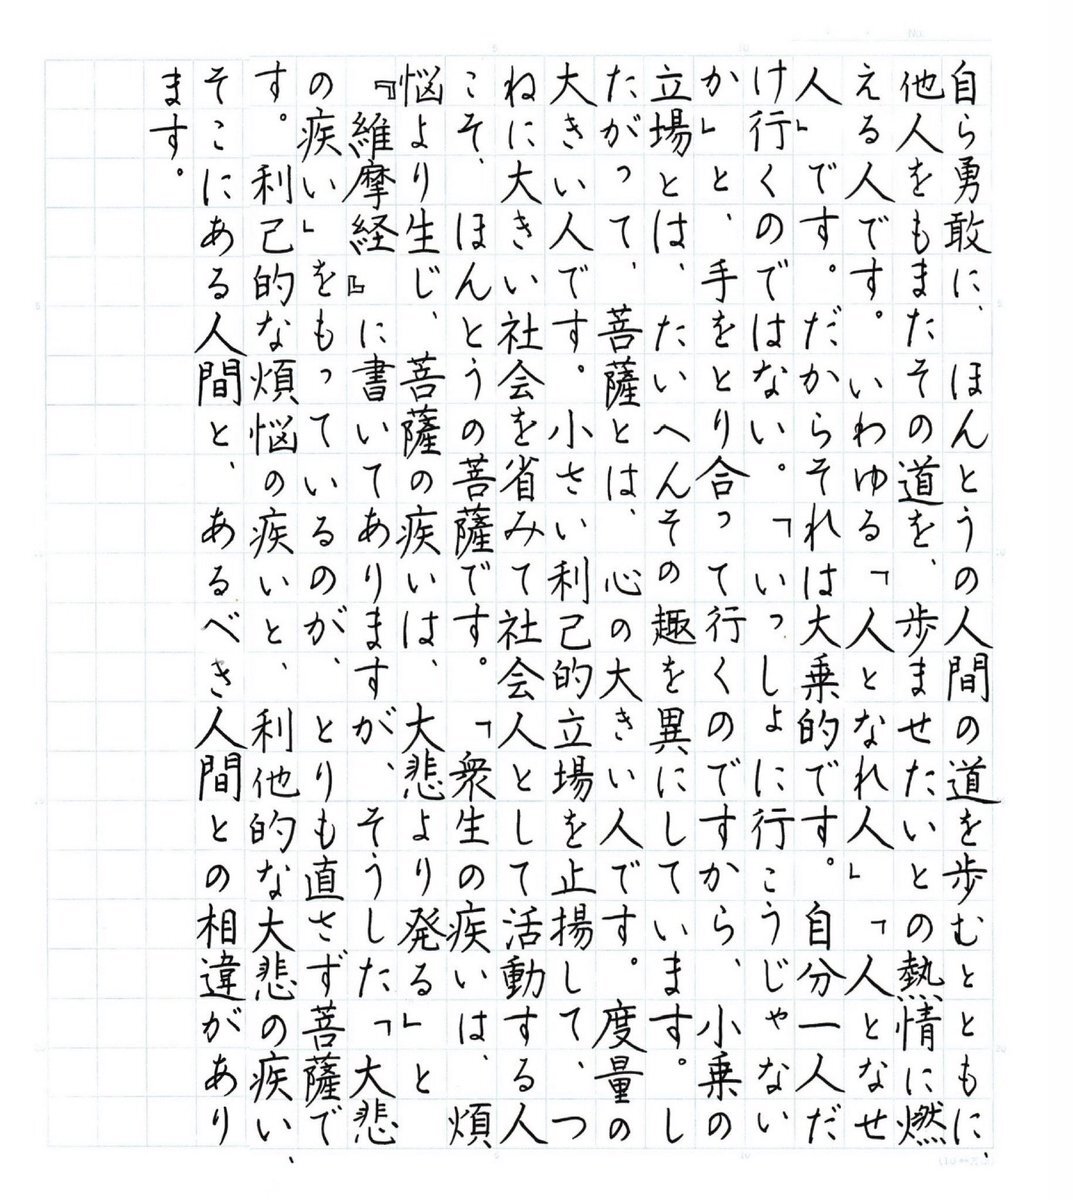 自ら勇敢に、ほんとうの人間の道を歩むとともに、
他人をもまたその道を、歩ませたいとの熱情に燃
える人です。いわゆる「人となれ人」「人となせ
人」です。だからそれは大乗的です。自分一人だ
け行くのではない。「いっしょに行こうじゃない
か」と、手をとり合って行くのですから、小乗の
立場とは、たいへんその趣を異にしています。し
たがって、菩薩とは、心の大きい人です。度量の
大きい人です。小さい利己的立場を止揚して、つ
ねに大きい社会を省みて社会人として活動する人
こそ、ほんとうの菩薩です。「衆生の疾いは、煩
悩より生じ、菩薩の疾いは、大悲より発る」と
『維摩経』に書いてありますが、そうした「大悲
の疾い」をもっているのが、とりも直さず菩薩で
す。利己的な煩悩の疾いと、利他的な大悲の疾い、
そこにある人間と、あるべき人間との相違があり
ます。